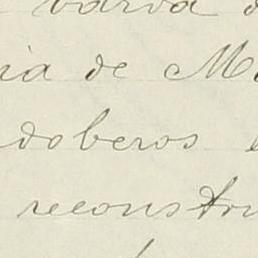 varva d
ria de Ma
doberos
reconstru